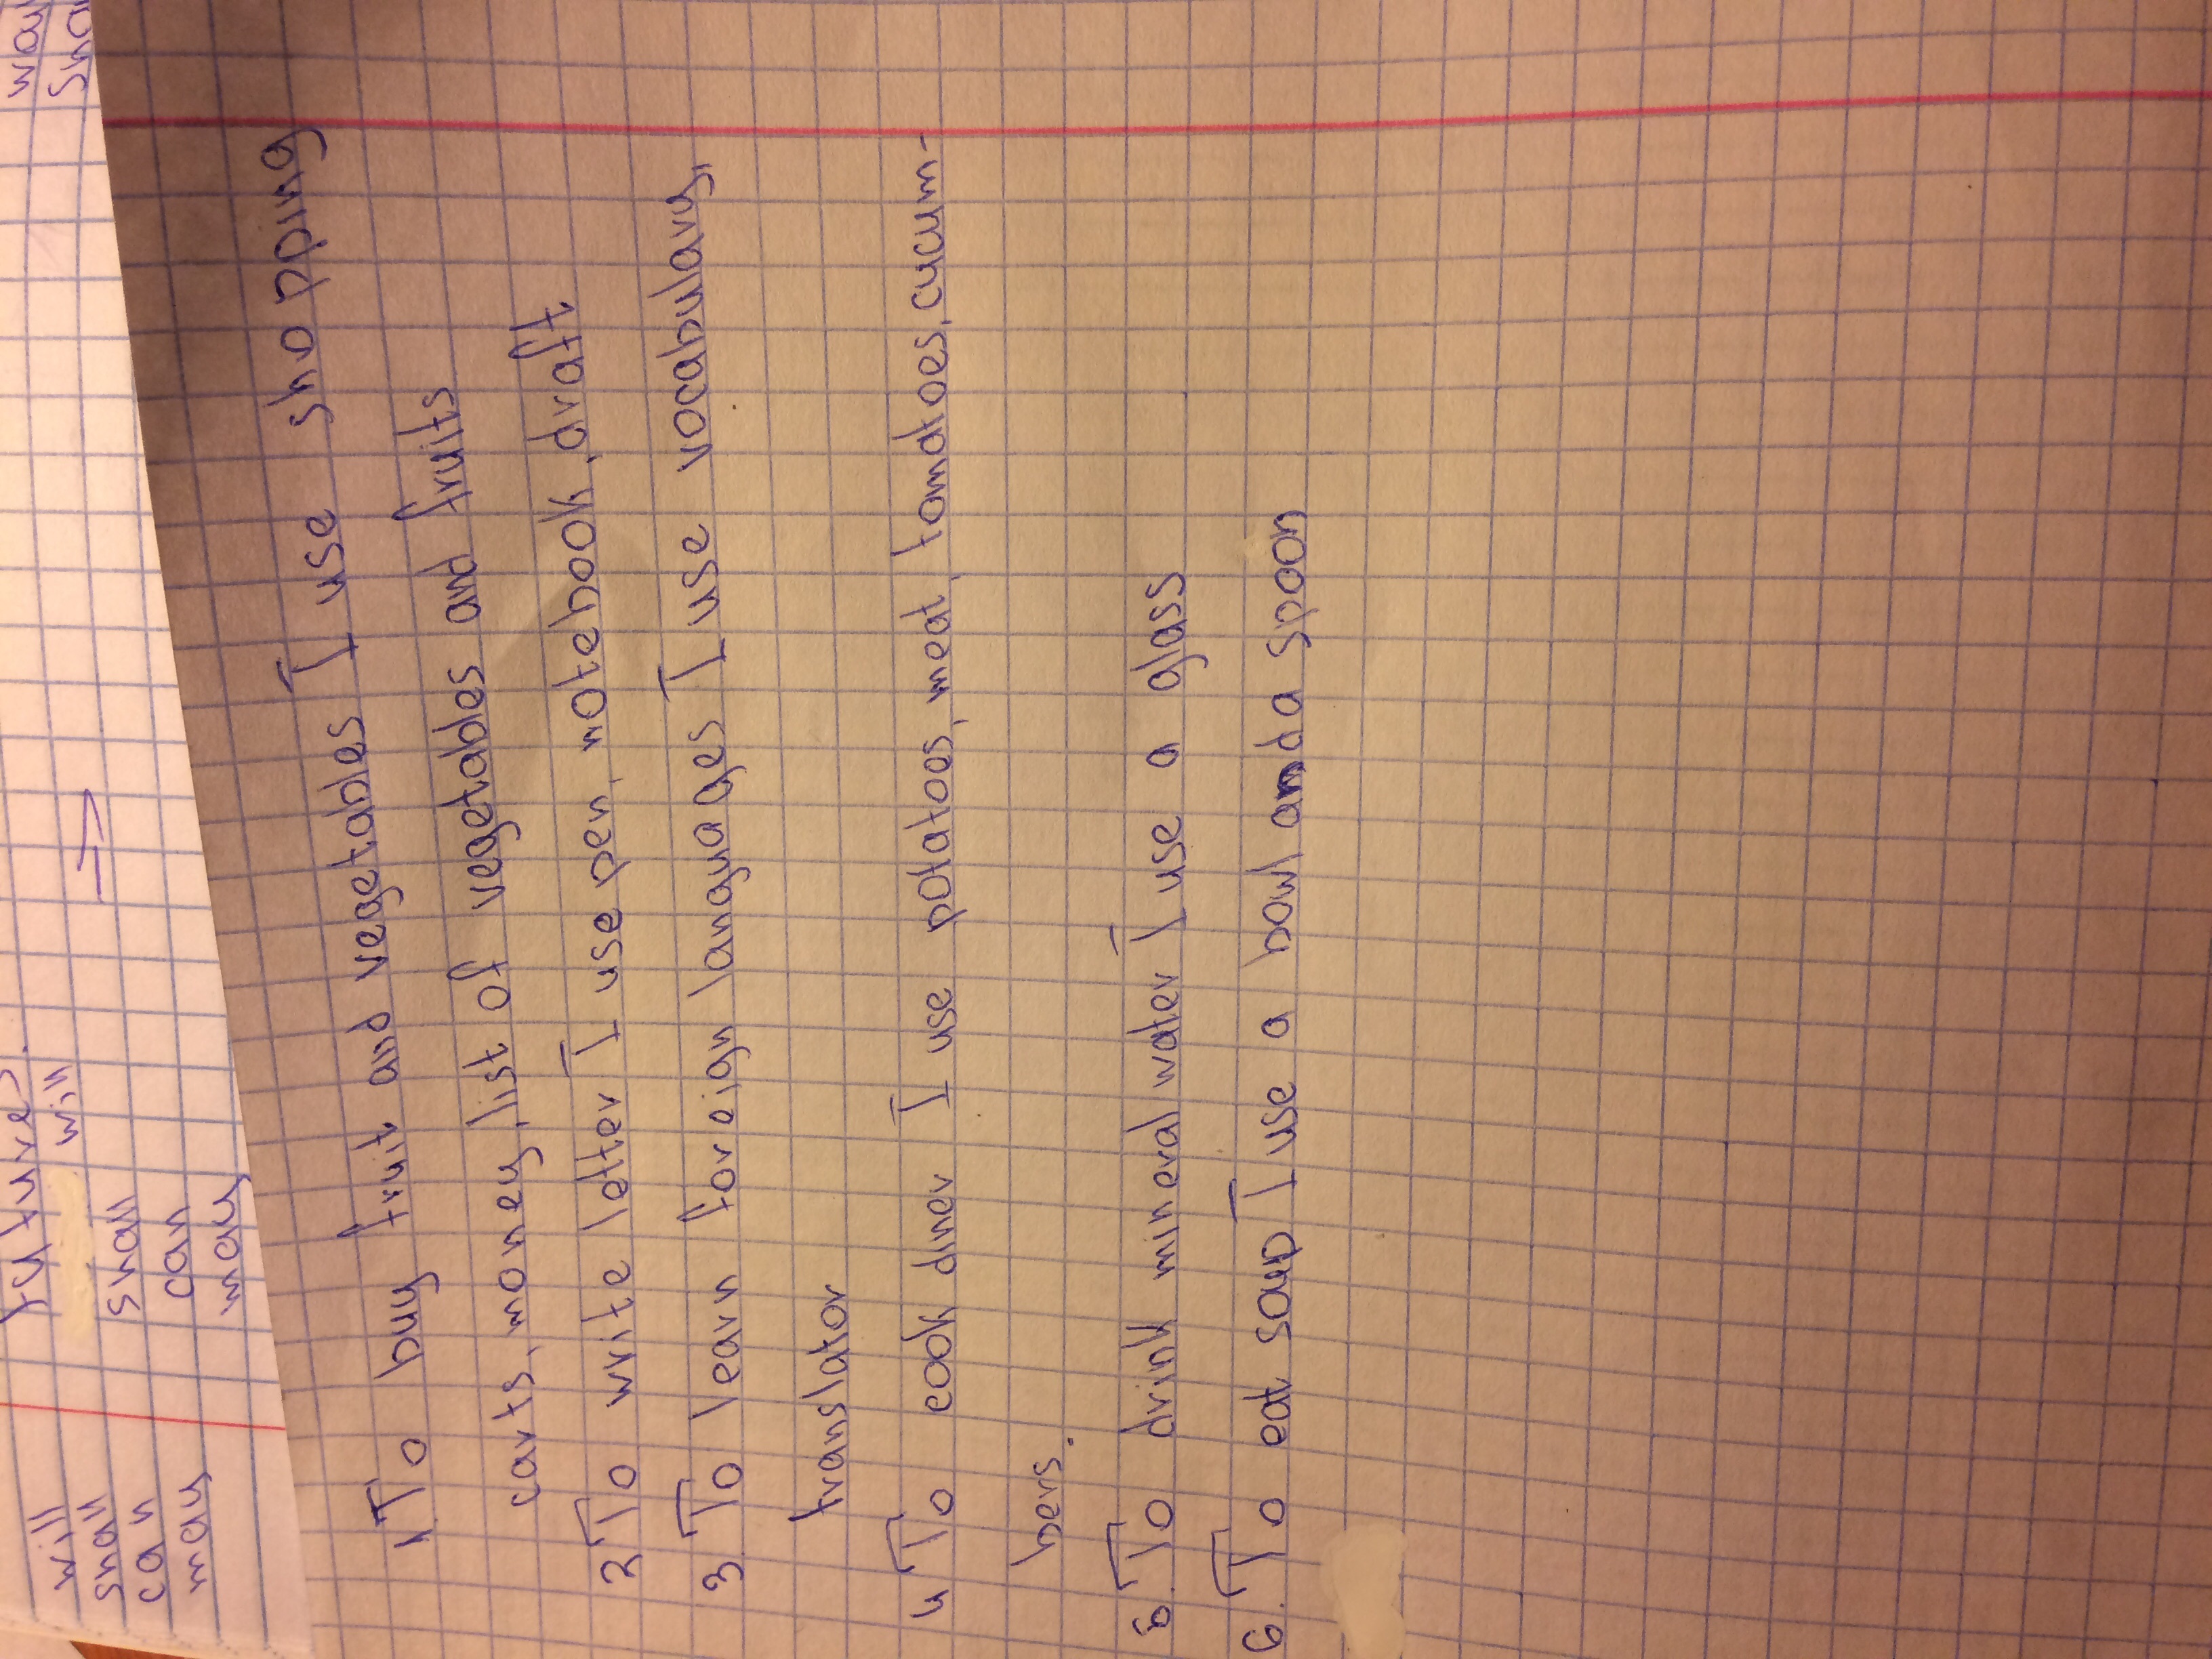 future
will will way
shall shall sha
can can
may may
1 To buy fruit and vegetables I use shopping
carts, money, list of vegetables and fruits
2 To write letter I use pen, notebook, draft
3. To learn foreign languages I use vocabulary,
translator
4 To cook diner I use potatoes, meat, tomatoes, cucum-
bers.
5. To drink mineral water I use a glass
6. To eat soup I use a bowl and a spoon